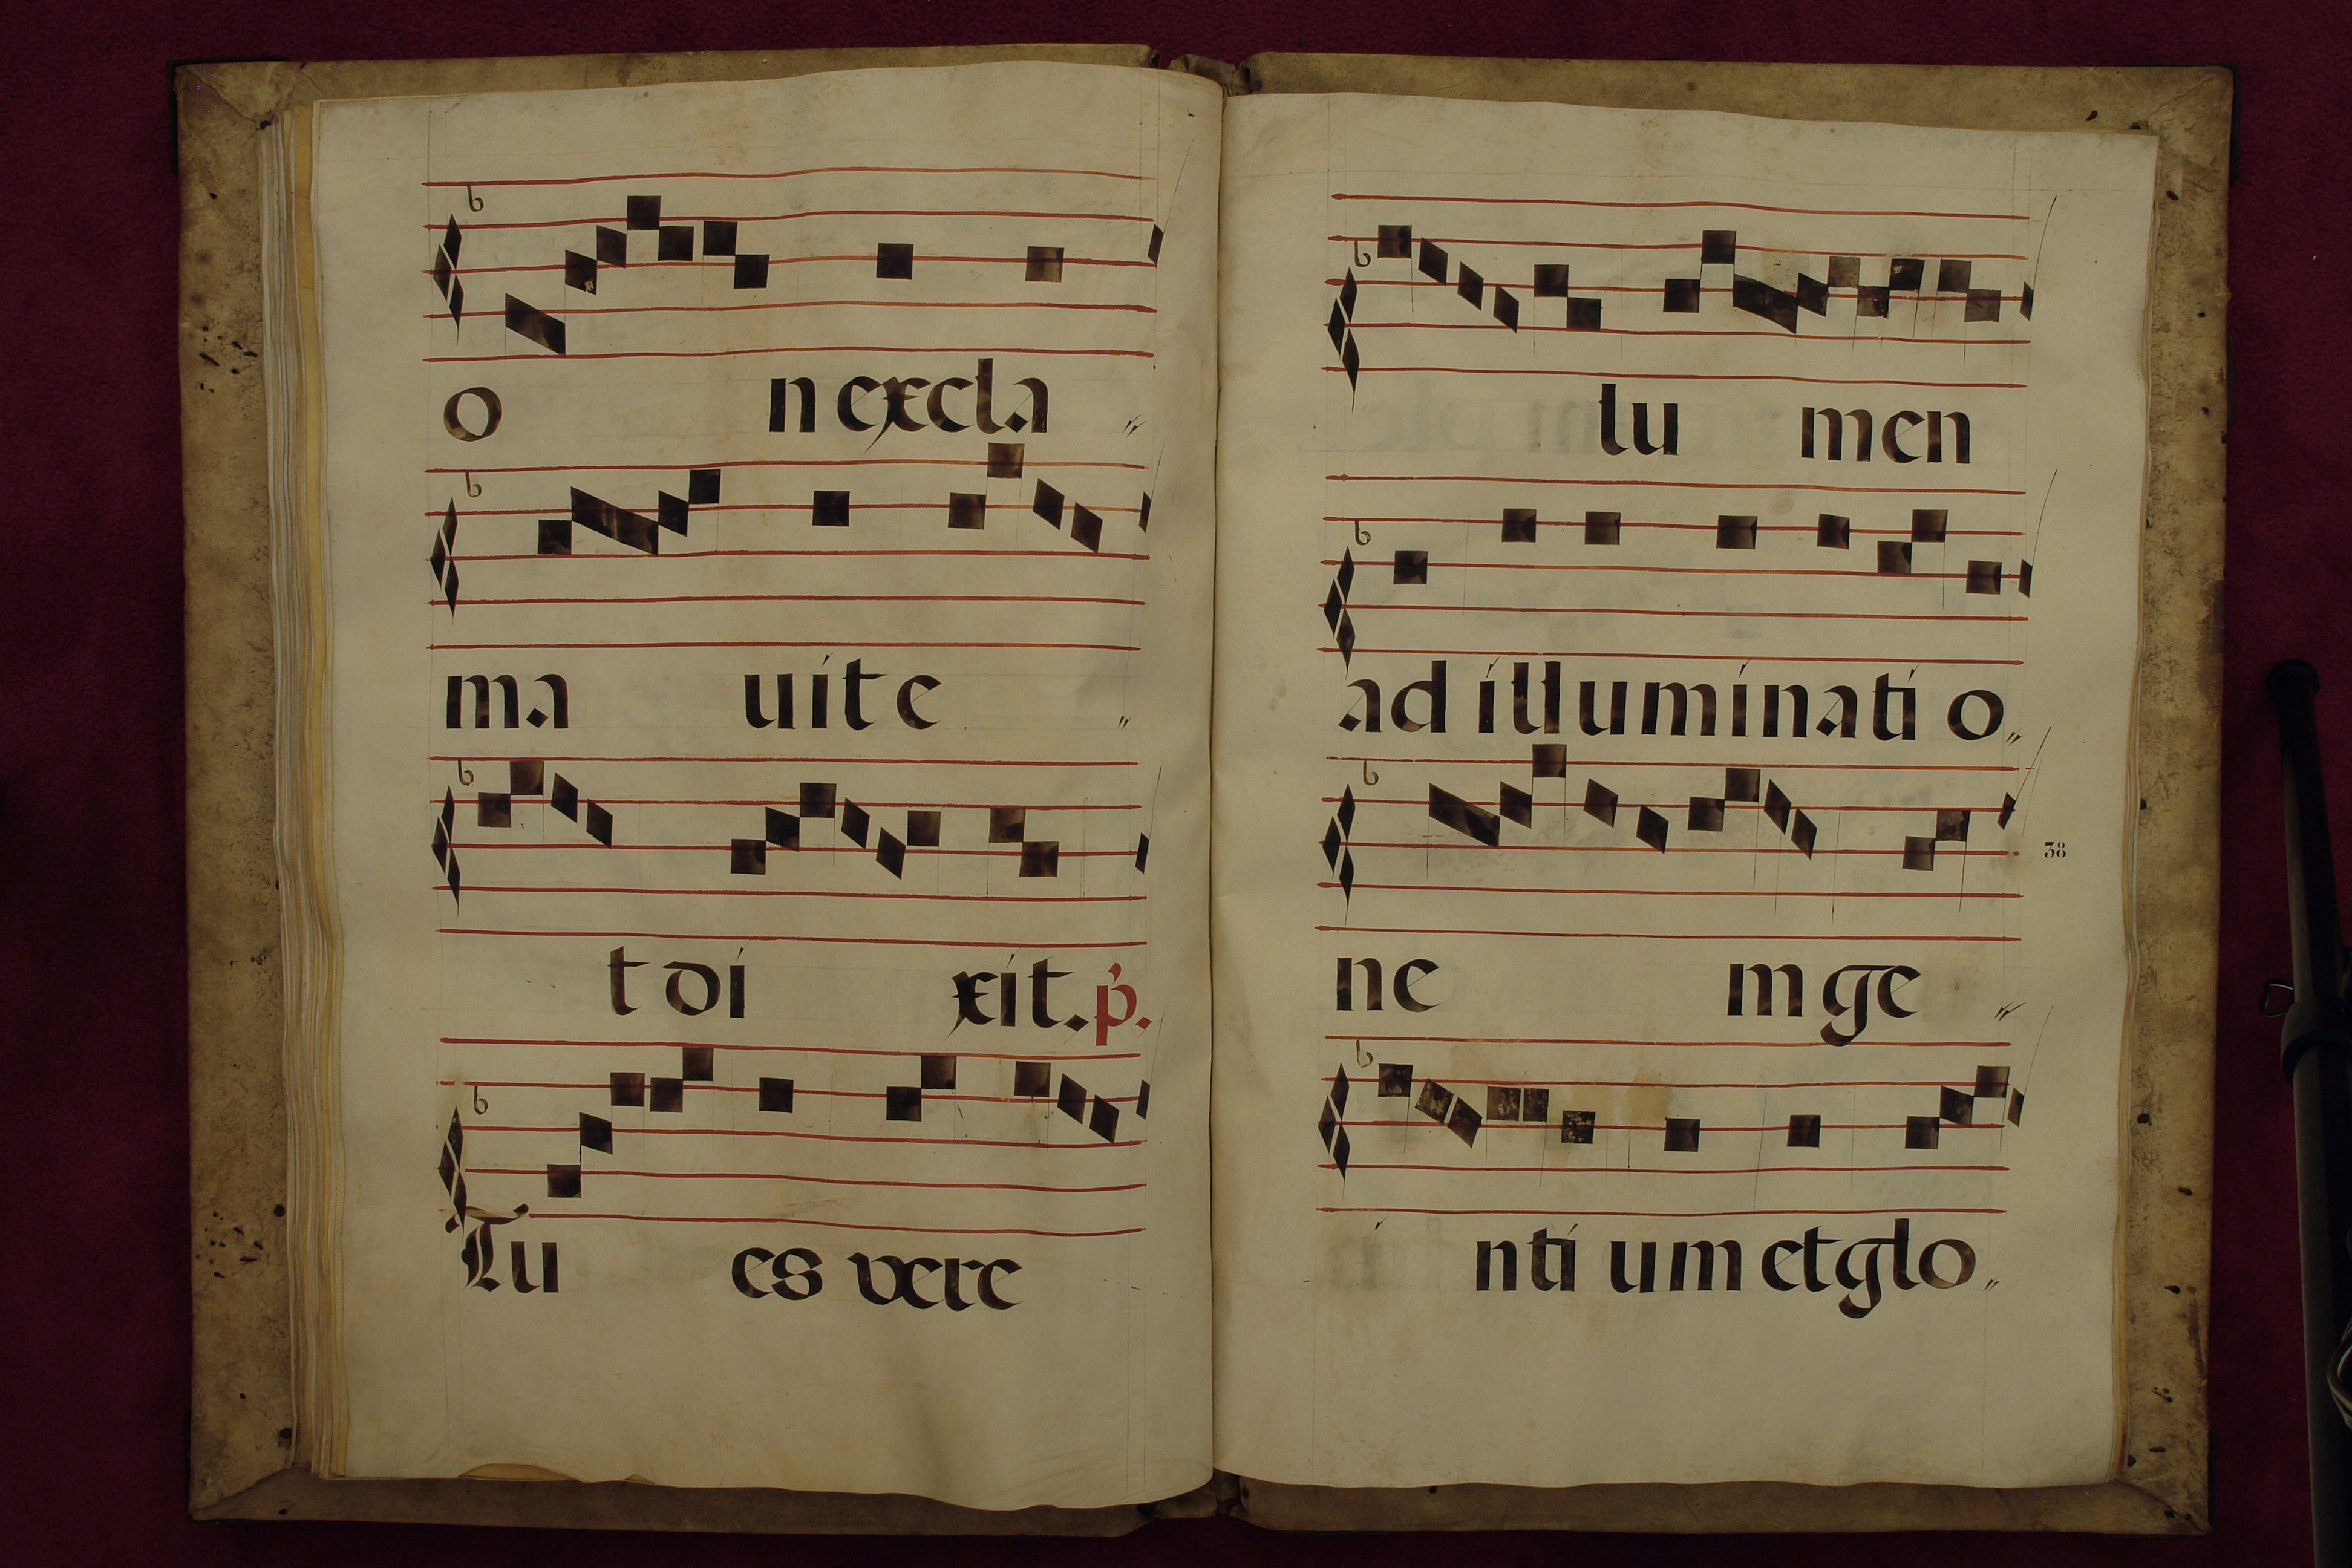 o n excla
ma uite
t di xit. p.
Tu es vere
lu men
ad illuminati o
38
ne m ge
nti um et glo